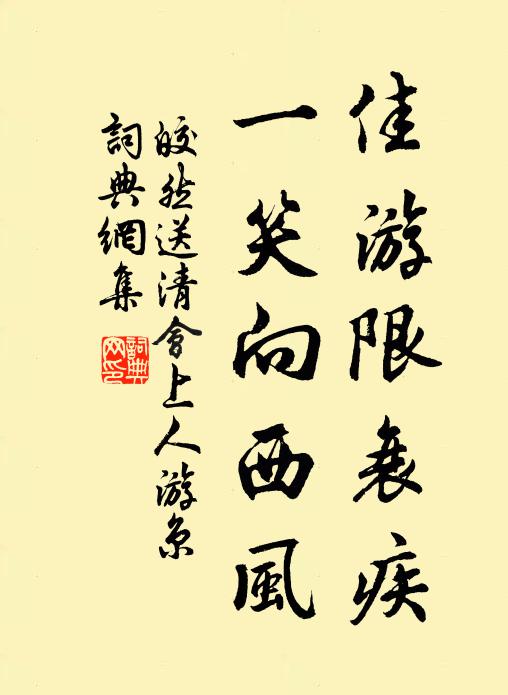 佳游限衰疾
一笑向西風
皎然送清會上人游京
詞典網集
詞典
网印